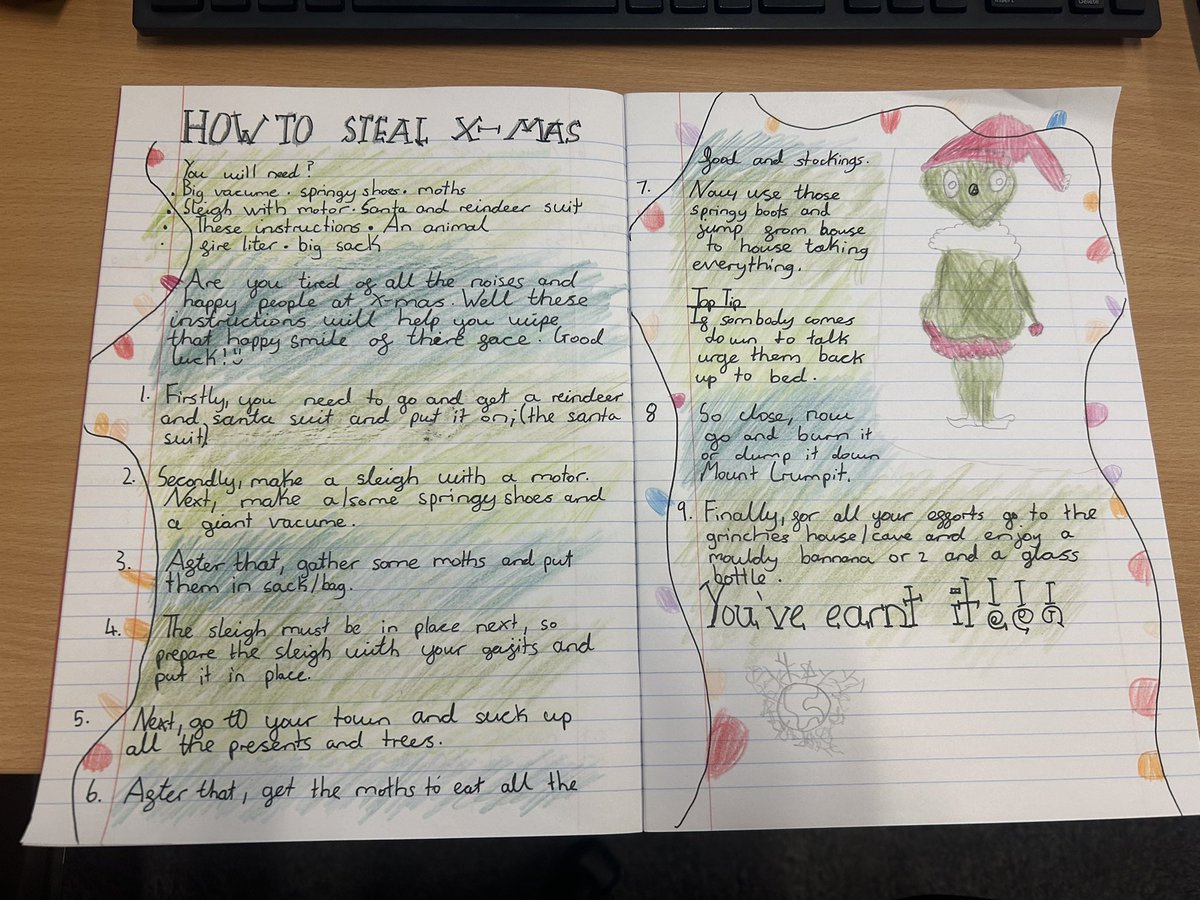 HOW TO STEAL X-MAS
You will need?
• Big vacume • springy shoes • moths
• Sleigh with motor • Santa and reindeer suit
• These instructions • An animal
• fire liter • big sack
Are you tired of all the noises and
happy people at X-mas. Well these
instructions will help you wipe
that happy smile of there face. Good
luck! :)
1. Firstly, you need to go and get a reindeer
and santa suit and put it on; (the santa
suit)
2. Secondly, make a sleigh with a motor.
Next, make a/some springy shoes and
a giant vacume.
3. After that, gather some moths and put
them in sack/bag.
4. The sleigh must be in place next, so
prepare the sleigh with your gasits and
put it in place.
5. Next, go to your town and suck up
all the presents and trees.
6. After that, get the moths to eat all the
food and stockings.
7. Now use those
springy boots and
jump from house
to house taking
everything.
Top Tip
If sombody comes
down to talk
urge them back
up to bed.
8 So close, now
go and burn it
or dump it down
Mount Crumpit.
9. Finally, for all your efforts go to the
grinchies house/cave and enjoy a
mouldy bannana or 2 and a glass
bottle.
You've earnt it